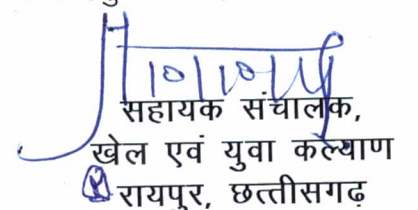 सहायक संचालक,
खेल एवं युवा कल्याण
रायपुर, छत्तीसगढ़